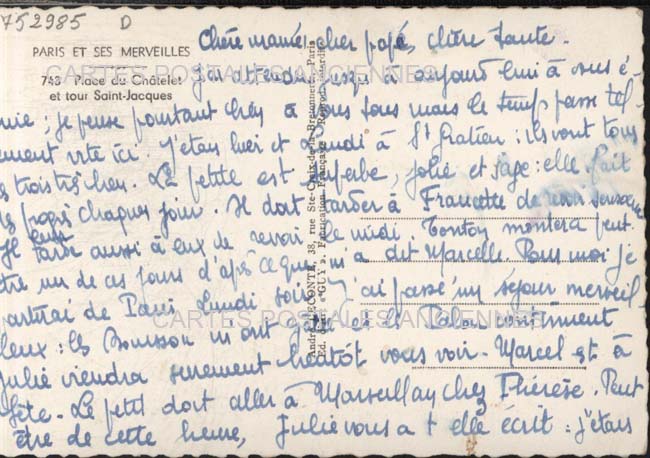 752985 D
PARIS ET SES MERVEILLES
743 Place du Châtelet
et tour Saint-Jacques
Chère mamée, cher papé, chère tante.
J'ai attendu jusqu'à aujourd'hui à vous é-
; je pense pourtant bien à vous tous mais le temps passe tel-
lement vite ici. J'étais hier et Lundi à St Gratien : ils vont tous
les trois très bien. La petite est superbe, jolie et sage : elle fait
des progrès chaque jour. Il doit tarder à Francette de
Il leur tarde aussi à eux de revoir le midi. Tonton montera peut-
être un de ces jours d'après ce que m'a dit Marcelle. Pour moi je
partirai de Paris Lundi soir. J'ai passé un séjour merveil
leux : les Bousson m'ont gâté et continuent
Julie viendra surement bientôt vous voir. Marcel est à
Sète. Le petit doit aller à Marseillan chez Thérèse. Peut
être de cette heure, Julie vous a t elle écrit : j'étais
André LECONTE, 38, rue Ste-Croix-de-la-Bretonnerie, Paris
CARTES POSTALES ANCIENNES
CARTES POSTALES ANCIENNES